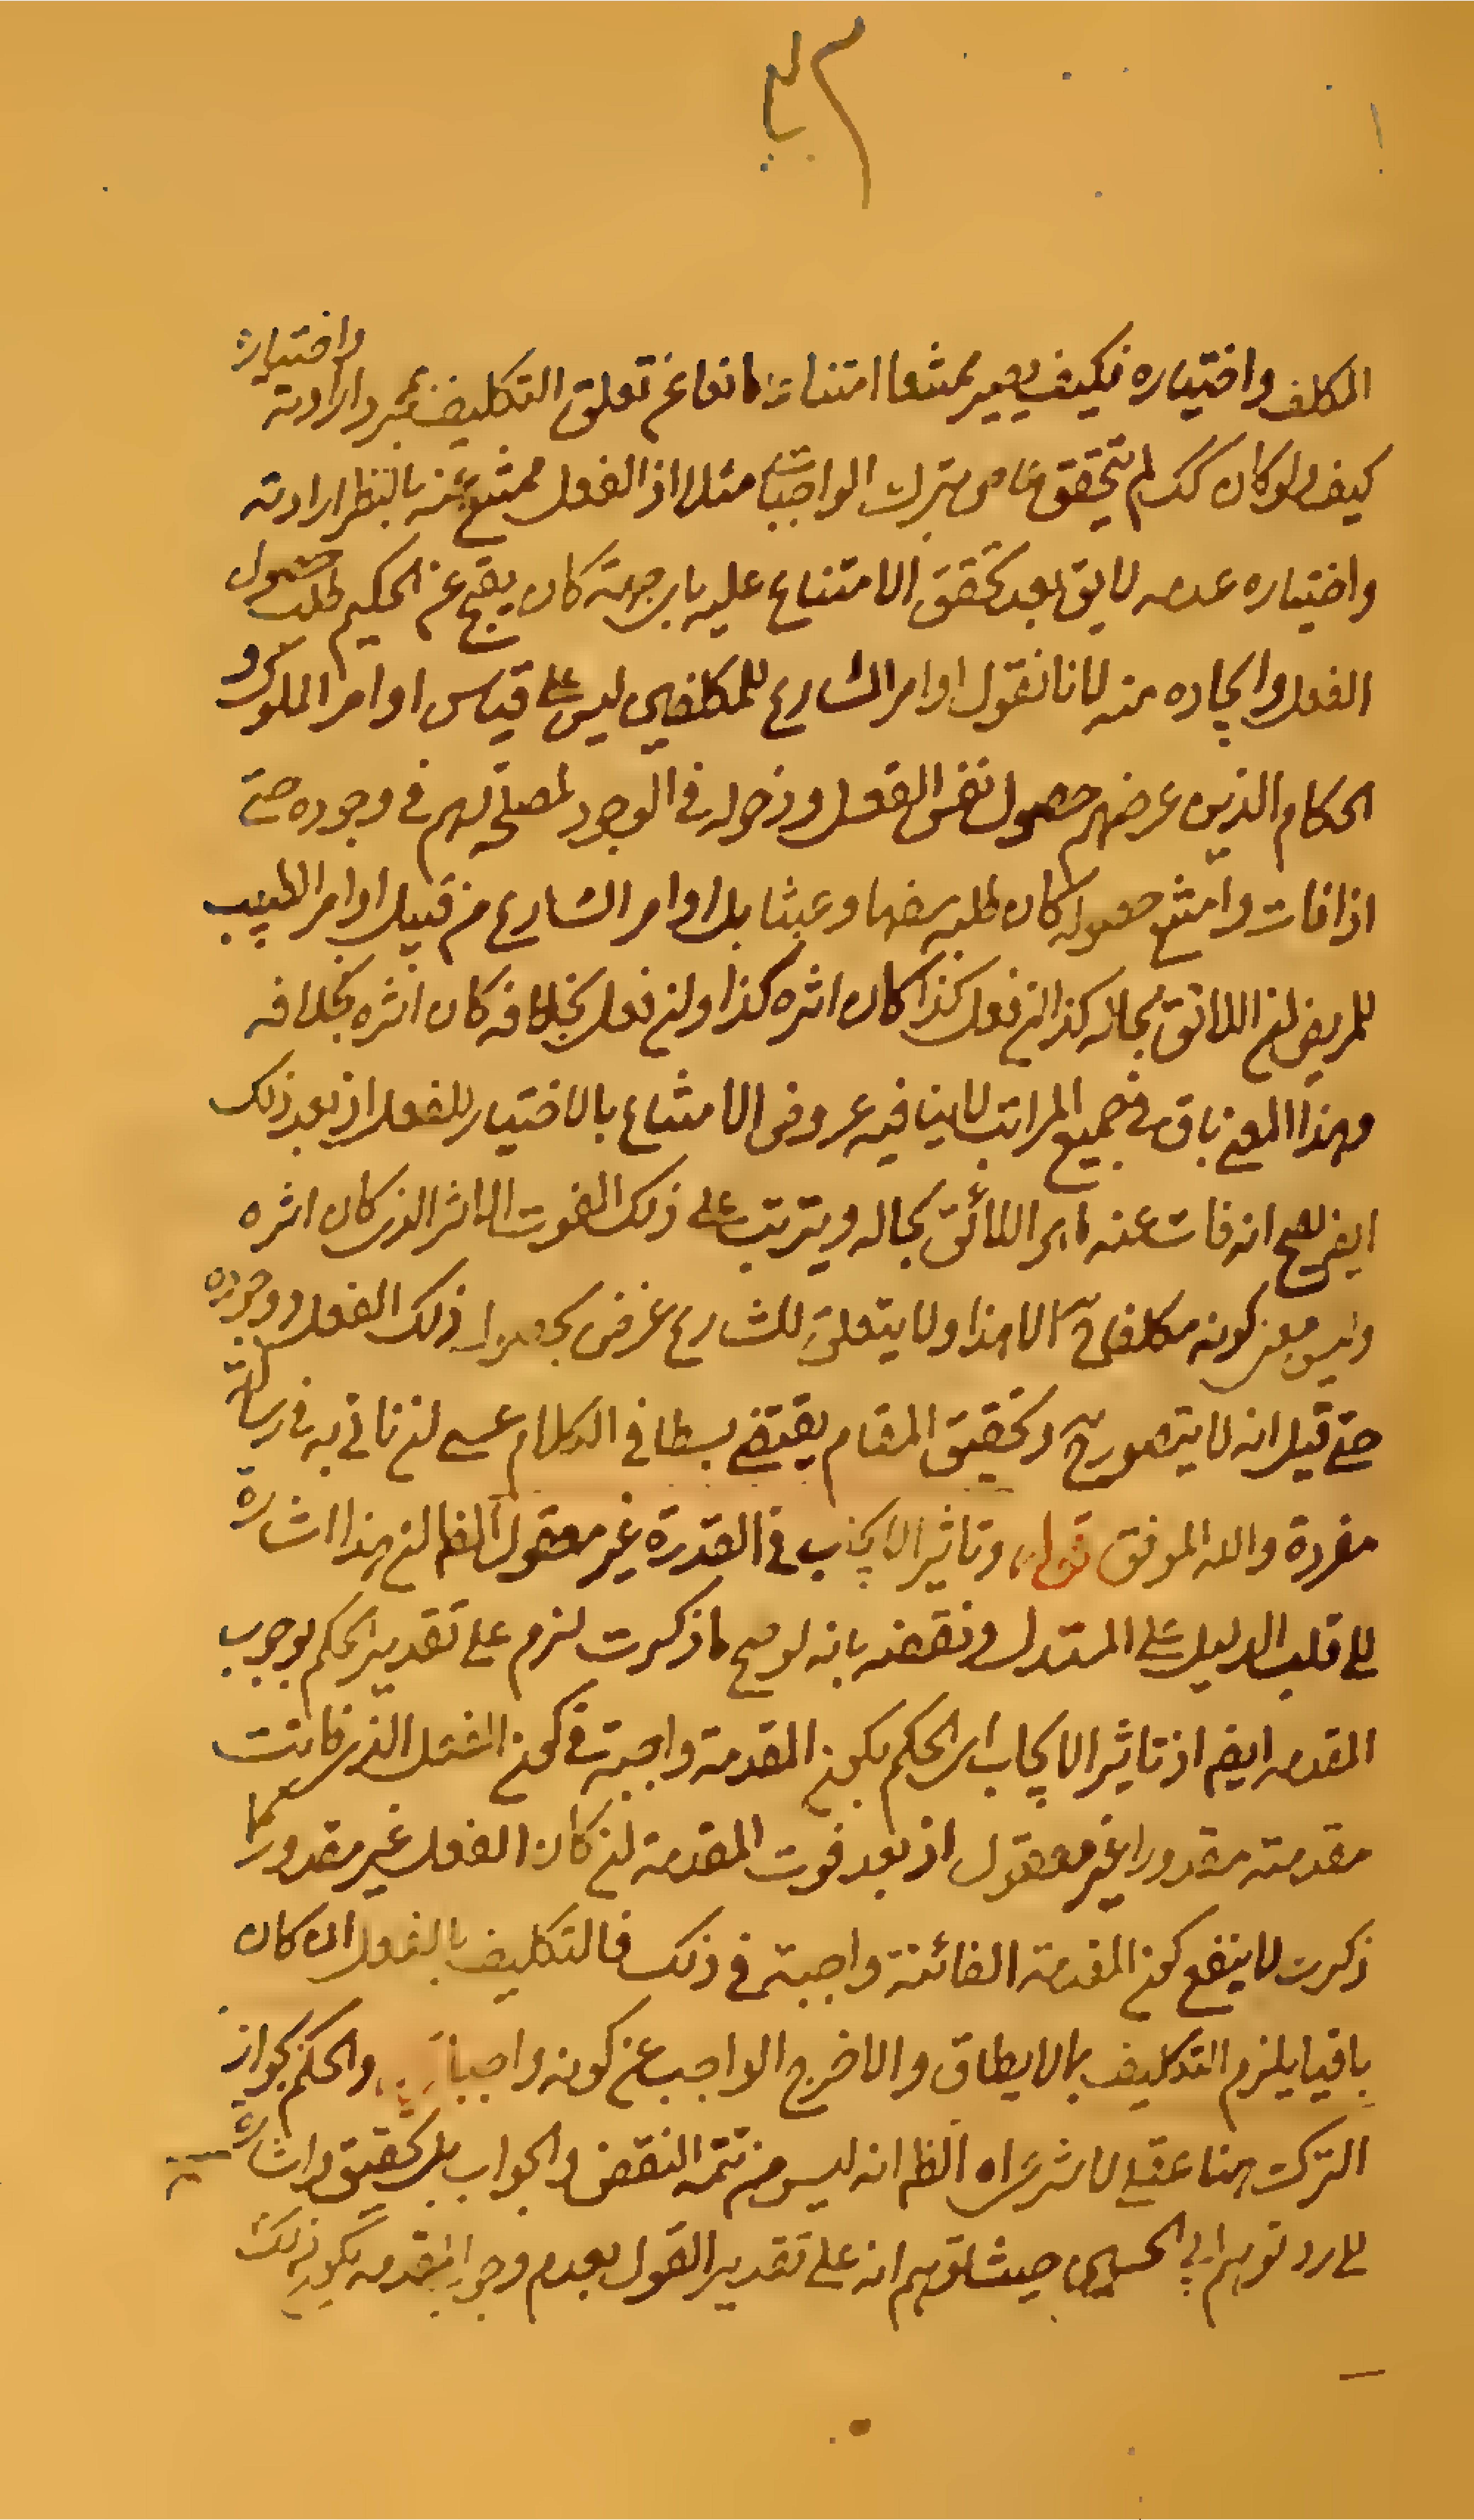 المكلف واختياره فكيف يصير ممتنعا امتناعا مانعا عن تعلق التكليف بمجرد ارادته واختياره
كيف ولو كان كك لم يتحقق عاص بترك الواجبات مثلا اذ الفعل ممتنع عنه بالنظر ارادته
واختياره عدمه لا يق بعد تحقق الامتناع عليه باى جهة كان يقبح عن الحكيم طلب حصول
الفعل وايجاده منه لانا نقول اوامر الشارع للمكلفين ليس على قياس اوامر الملوك و
الحكام الذين غرضهم حصول نفس الفعل ودخوله فى الوجود لمصلحة لهم فى وجوده حتى
اذا فات وامتنع حصوله كان طلبه سفها وعبثا بل اوامر الشارع من قبيل اوامر الطبيب
للمريض ان اللائق بحاله كذا ان فعل كذا كان اثره كذا وان فعل بخلافه كان اثره بخلافه
وهذا المعنى باق فى جميع المراتب لا ينافيه عروض الامتناع بالاختيار للفعل اذ بعد ذلك
ايض يصح انه فات عنه ما هو اللائق بحاله ويترتب على ذلك الفوت الاثر الذى كان اثره
وليس معنى كونه مكلفا ح الا هذا ولا يتعلق للشارع غرض بحصول ذلك الفعل ووجوده
حتى قيل انه لا يتصور ح وتحقيق المقام يقتضى بسطا فى الكلام عسى ان ناتى به فى رسالة
مفردة والله الموفق قوله وتاثير الايجاب فى القدرة غير معقول الظ ان هذا اشارة
الى قلب الدليل على المستدل ونقضه بانه لو صح ما ذكرت لزم على تقدير الحكم بوجوب
المقدمه ايض اذ تاثير الايجاب اى الحكم بكون المقدمة واجبة فى كون الفعل الذى فاتت
مقدمته مقدورا غير معقول اذ بعد فوت المقدمة ان كان الفعل غير مقدور كما
ذكرت لا ينفع كون المقدمة الفائتة واجبة فى ذلك فالتكليف بالفعل ان كان
باقيا يلزم التكليف بما لا يطاق والا خرج الواجب عن كونه واجبا والحكم بجواز
الترك هنا عقلى لا شرعى اه الظ انه ليس من تتمه النقض والجواب بل تحقيق واشارة
الى رد توهم ابى الحسين حيث توهم انه على تقدير القول بعدم وجوب المقدمه يكون ذلك